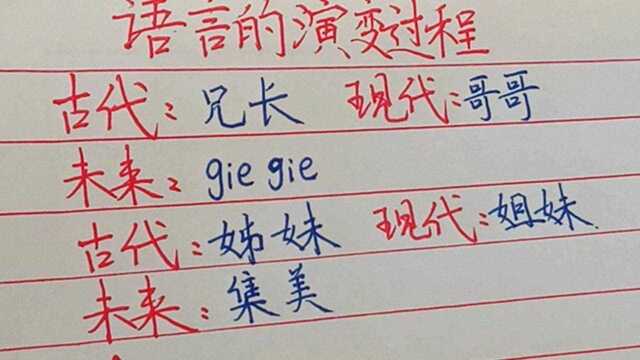 语言的演变过程
古代：兄长 现代：哥哥
未来：gie gie
古代：姊妹 现代：姐妹
未来：集美